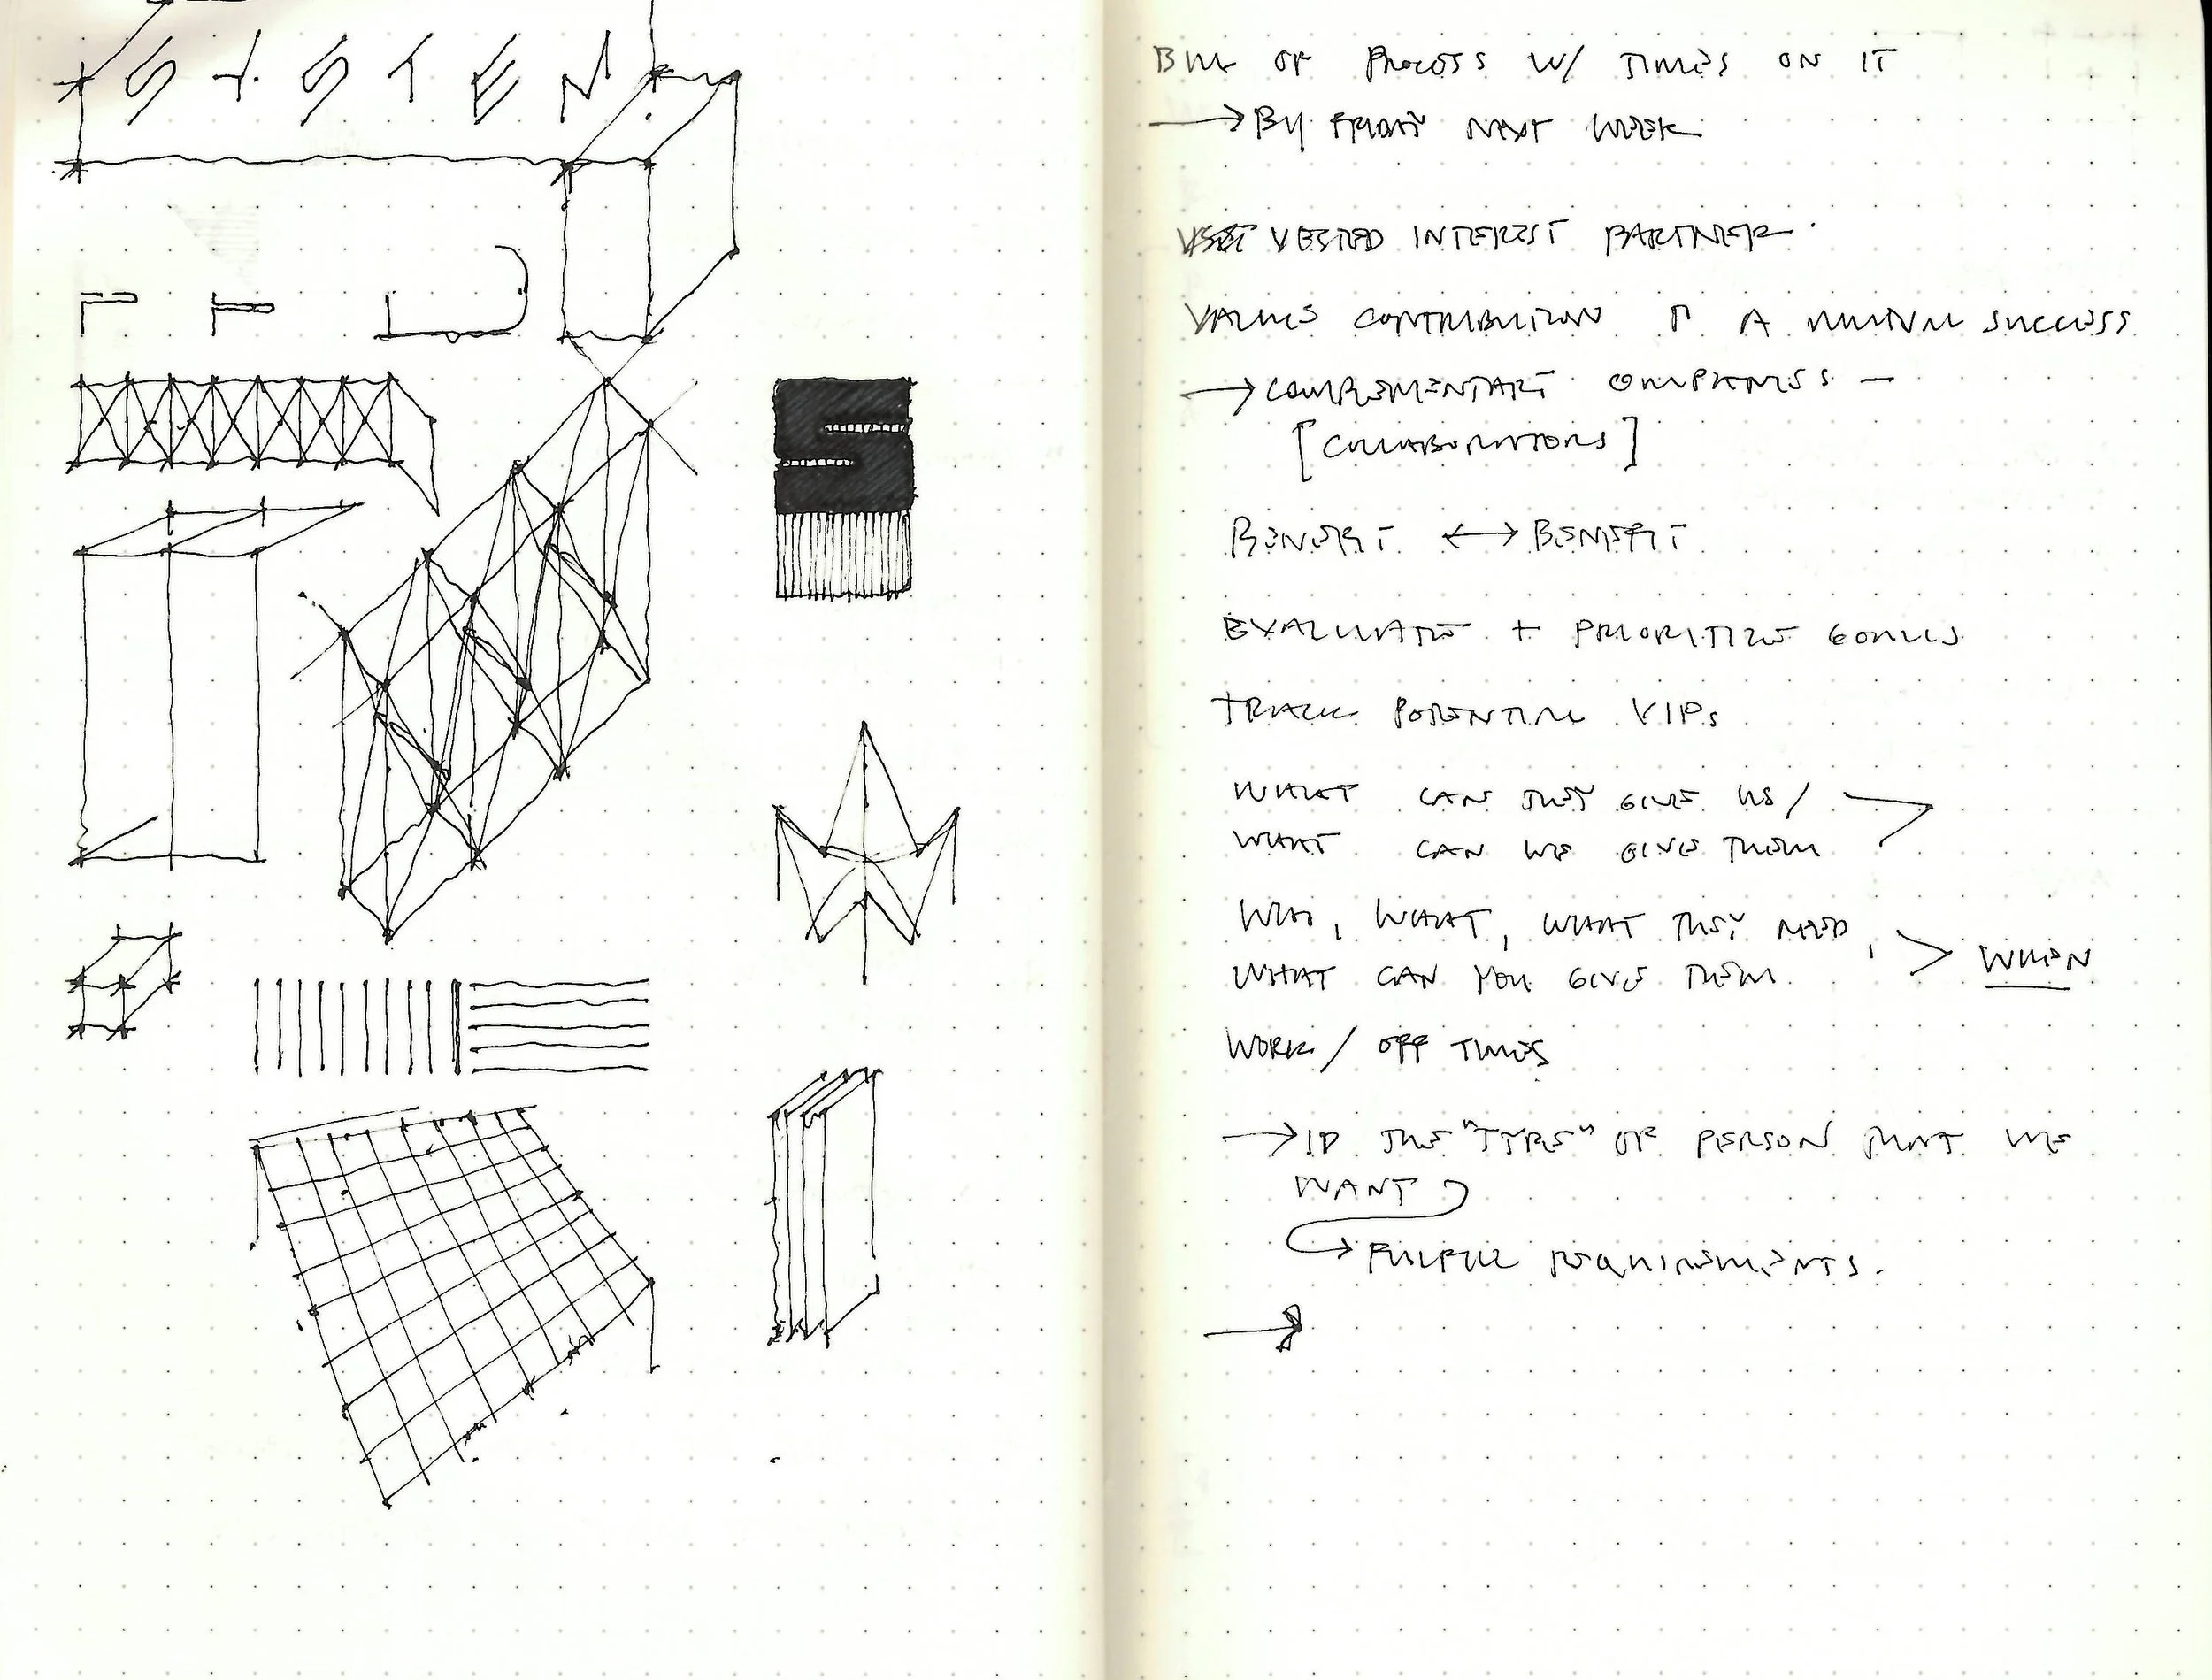 SYSTEM
BILL OF PROCESS W/ TIMES ON IT
→ BY FRIDAY NEXT WEEK
VESTED INTEREST PARTNER.
VALUES CONTRIBUTION A MUTUAL SUCCESS
→ COMPLEMENTARY COMPANIES –
[COLLABORATORS]
BENEFIT ↔ BENEFIT
EVALUATE + PRIORITIZE GOALS
TRACK POTENTIAL VIPs
WHAT CAN THEY GIVE US /
WHAT CAN WE GIVE THEM
WHO, WHAT, WHAT THEY NEED,
WHAT CAN YOU GIVE THEM > WHEN
WORK / OFF TIMES
→ ID THE "TYPE" OF PERSON THAT WE
WANT
→ FULFILL REQUIREMENTS.